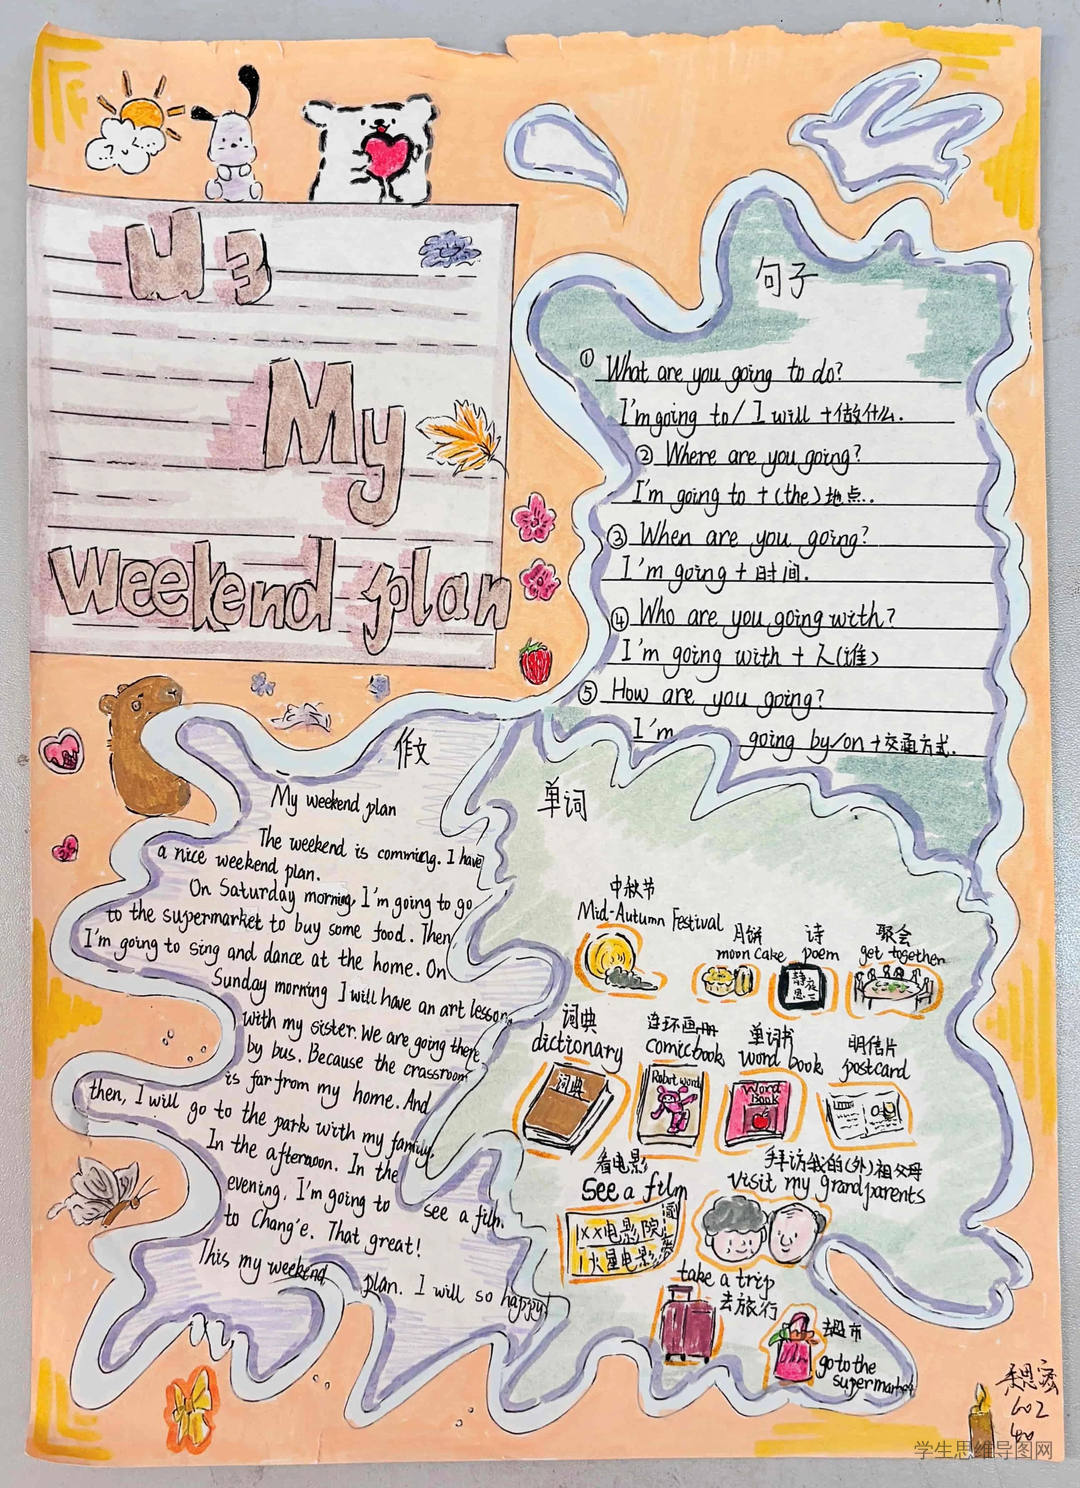 U3
My
weekend plan
句子
① What are you going to do?
I'm going to / I will +做什么.
② Where are you going?
I'm going to +(the)地点..
③ When are you going?
I'm going +时间.
④ Who are you going with?
I'm going with + 人(谁)
⑤ How are you going?
I'm going by/on +交通方式.
作文
My weekend plan
The weekend is comming. I have
a nice weekend plan.
On Saturday morning, I'm going to go
to the supermarket to buy some food. Then,
I'm going to sing and dance at the home. On
Sunday morning I will have an art lesson
with my sister. We are going there
by bus. Because the crassroom
is far from my home. And
then, I will go to the park with my family.
In the afternoon. In the
evening, I'm going to see a film.
to Chang'e. That great!
This my weekend plan. I will so happy!
单词
中秋节
Mid-Autumn Festival
月饼
moon cake
诗
poem
聚会
get together
静夜思
词典
dictionary
连环画册
comic book
单词书
word book
明信片
postcard
词典
Robot world
Word
Book
看电影
see a film
拜访我的(外)祖父母
visit my grandparents
XX电影院
火星电影
take a trip
去旅行
去超市
go to the
supermarket
602
40
学生思维导图网